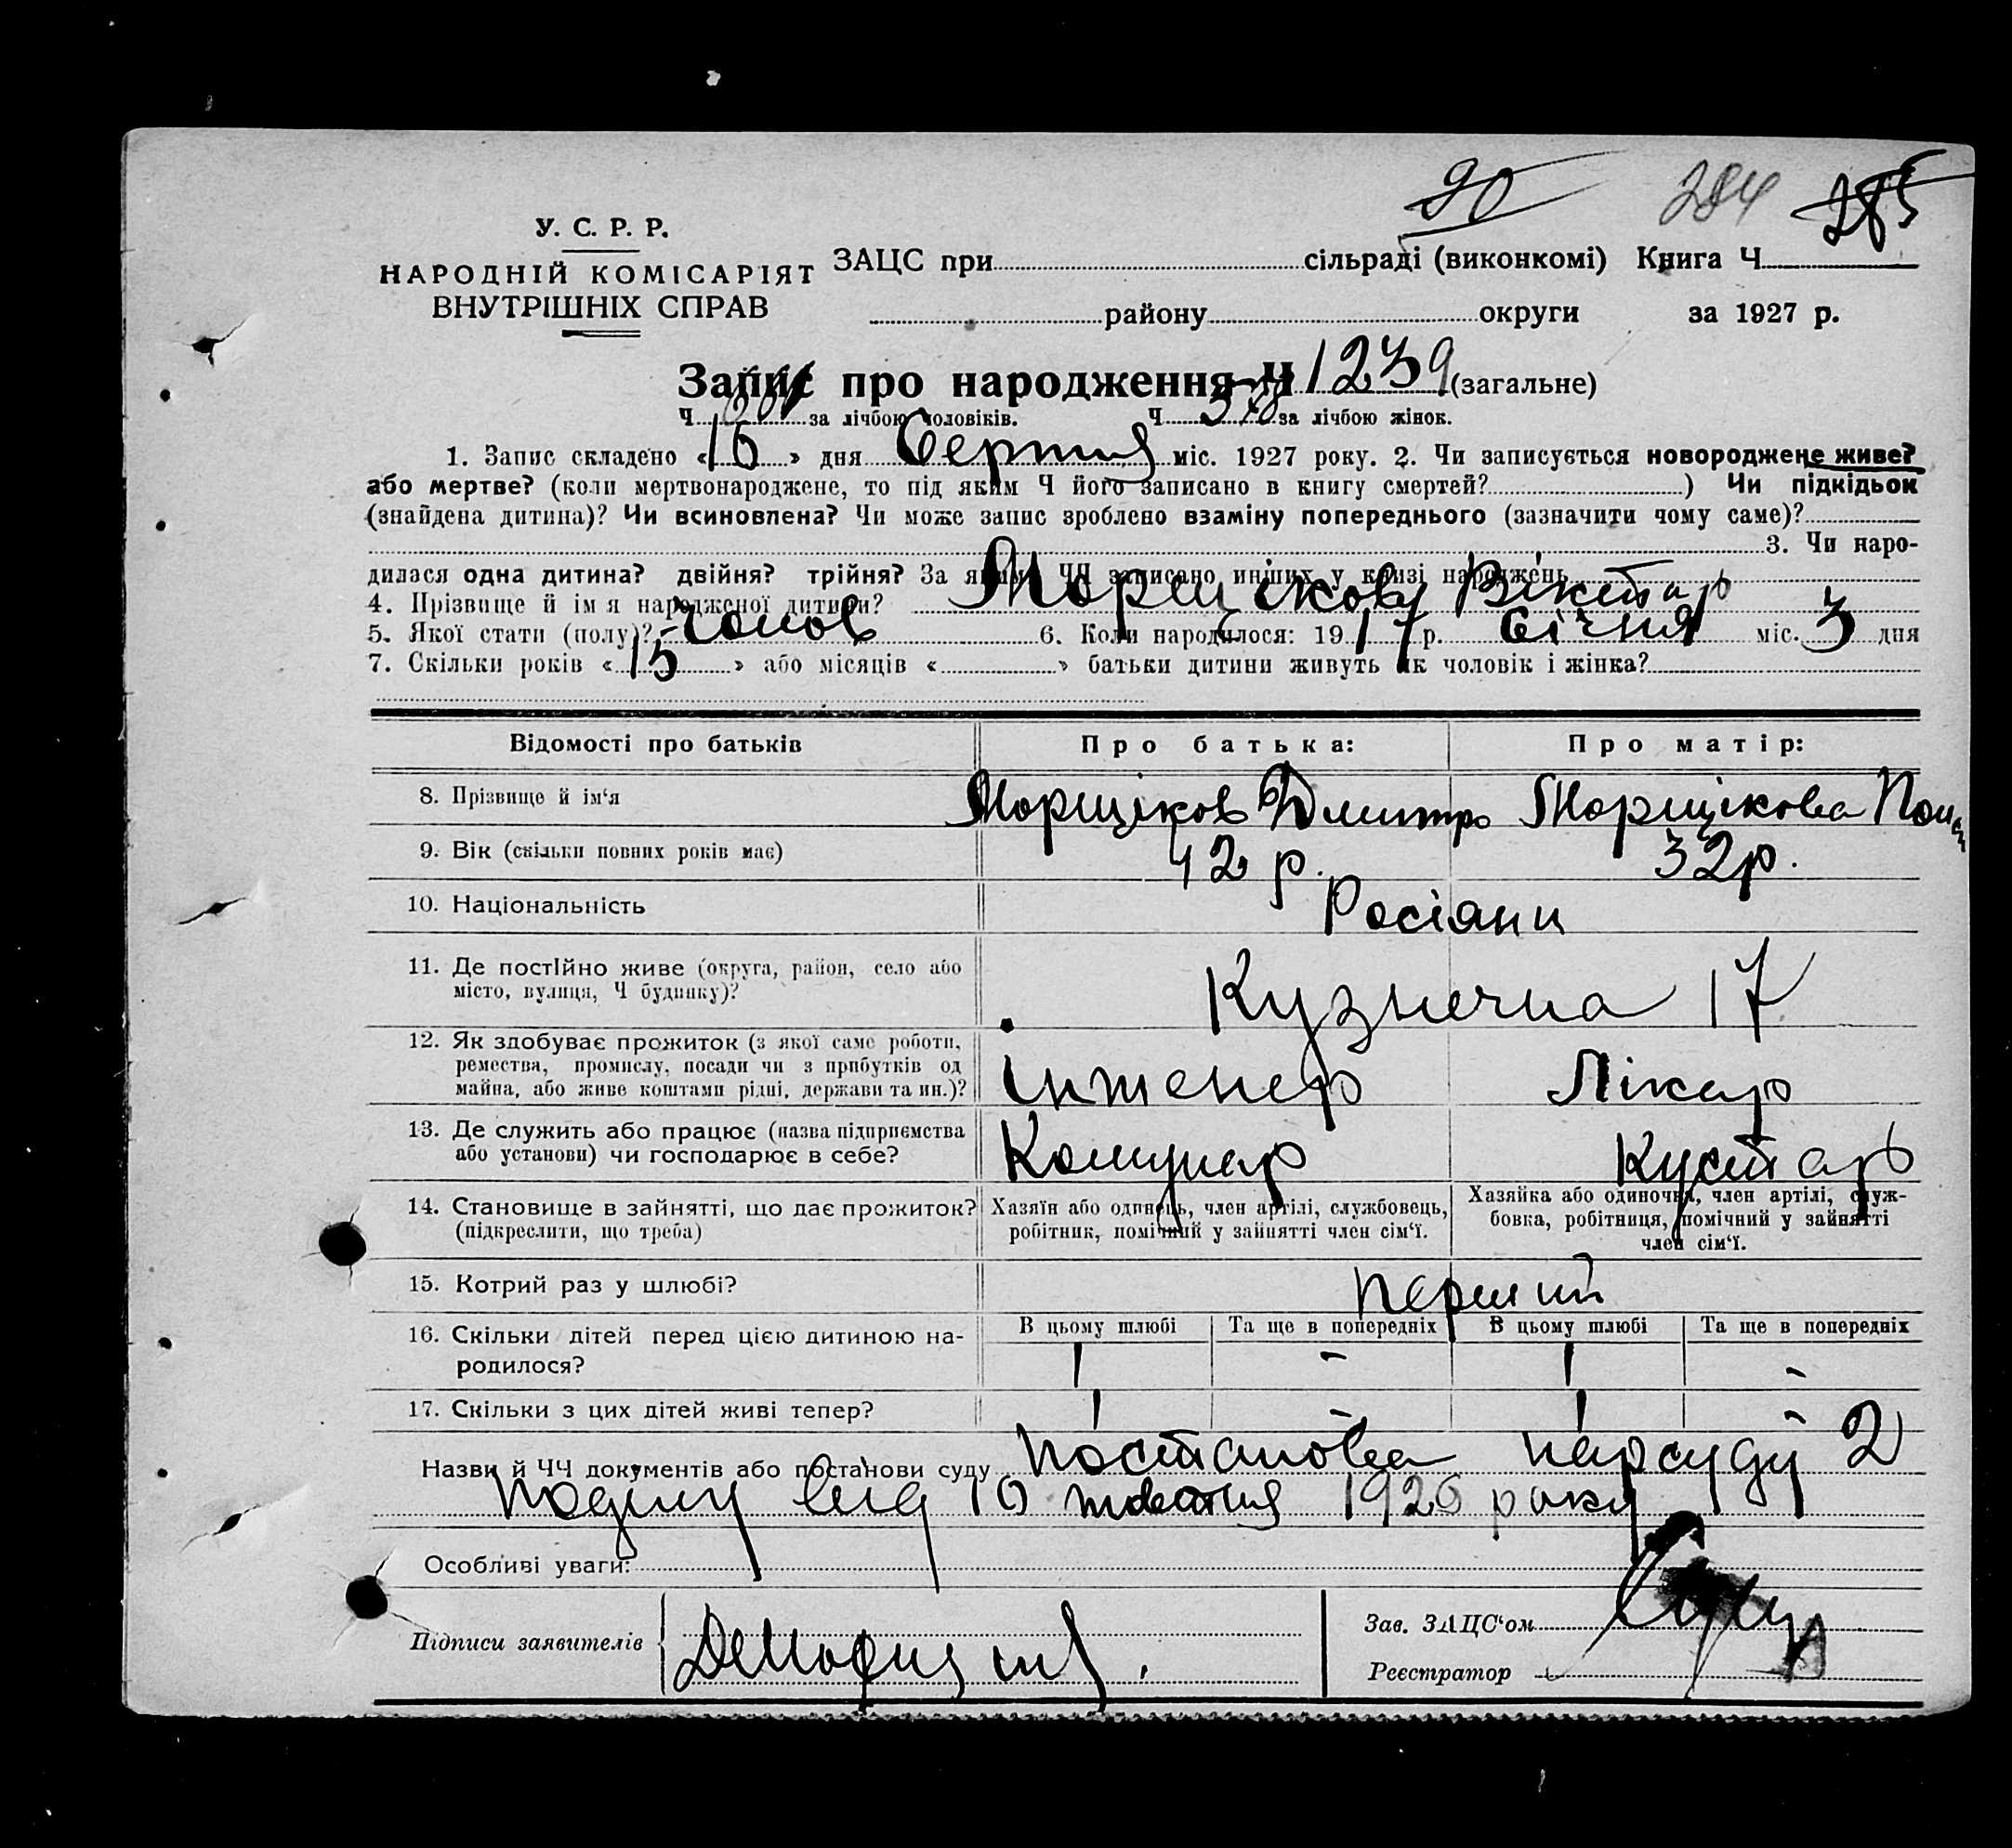 90 284 285
У. С. Р. Р.
НАРОДНІЙ КОМІСАРІЯТ
ВНУТРІШНІХ СПРАВ
ЗАЦС при сільраді (виконкомі) Книга Ч
району округи за 1927 р.
Запис про народження Ч 1239 (загальне)
Ч за лічбою чоловіків. Ч за лічбою жінок.
1. Запис складено « 16 » дня Серпня міс. 1927 року. 2. Чи записується новороджене живе?
або мертве? (коли мертвонароджене, то під яким Ч його записано в книгу смертей? ) Чи підкідьок
(знайдена дитина)? Чи всиновлена? Чи може запис зроблено взаміну попереднього (зазначити чому саме)?
3. Чи наро-
дилася одна дитина? двійня? трійня? За якими ЧЧ записано инших у книзі народжень
4. Прізвище й імʼя народженої дитини? Віктар
5. Якої стати (полу)? чолов 6. Коли народилося: 19 17 р. Січня міс. 3 дня
7. Скільки років « 15 » або місяців « » батьки дитини живуть як чоловік і жінка?
Відомості про батьків Про батька: Про матір:
8. Прізвище й ім‘я Морщіков Дмитро Морщікова
9. Вік (скільки повних років має) 42 р. 32 р.
10. Національність Росіяни
11. Де постійно живе (округа, район, село або
місто, вулиця, Ч будинку)? Кузнечна 17
12. Як здобуває прожиток (з якої саме роботи,
ремества, промислу, посади чи з прибутків од
майна, або живе коштами рідні, держави та ин.)? інженер Лікар
13. Де служить або працює (назва підприємства
або установи) чи господарює в себе? Комунар Кустарь
14. Становище в зайнятті, що дає прожиток?
(підкреслити, що треба)
Хазяїн або одинець, член артілі, службовець,
робітник, помічний у зайнятті член сім‘ї.
Хазяйка або одиночка, член артілі, служ-
бовка, робітниця, помічний у зайнятті
член сім‘ї.
15. Котрий раз у шлюбі? перший
16. Скільки дітей перед цією дитиною на-
родилося?
В цьому шлюбі Та ще в попередніх В цьому шлюбі Та ще в попередніх
1 - 1 -
17. Скільки з цих дітей живі тепер? 1 - 1 -
Назви й ЧЧ документів або постанови суду постанова нарсуду 2
від 10 жовтня 1926 року
Особливі уваги:
Підписи заявителів
Зав. ЗАЦС‘ом
Реєстратор